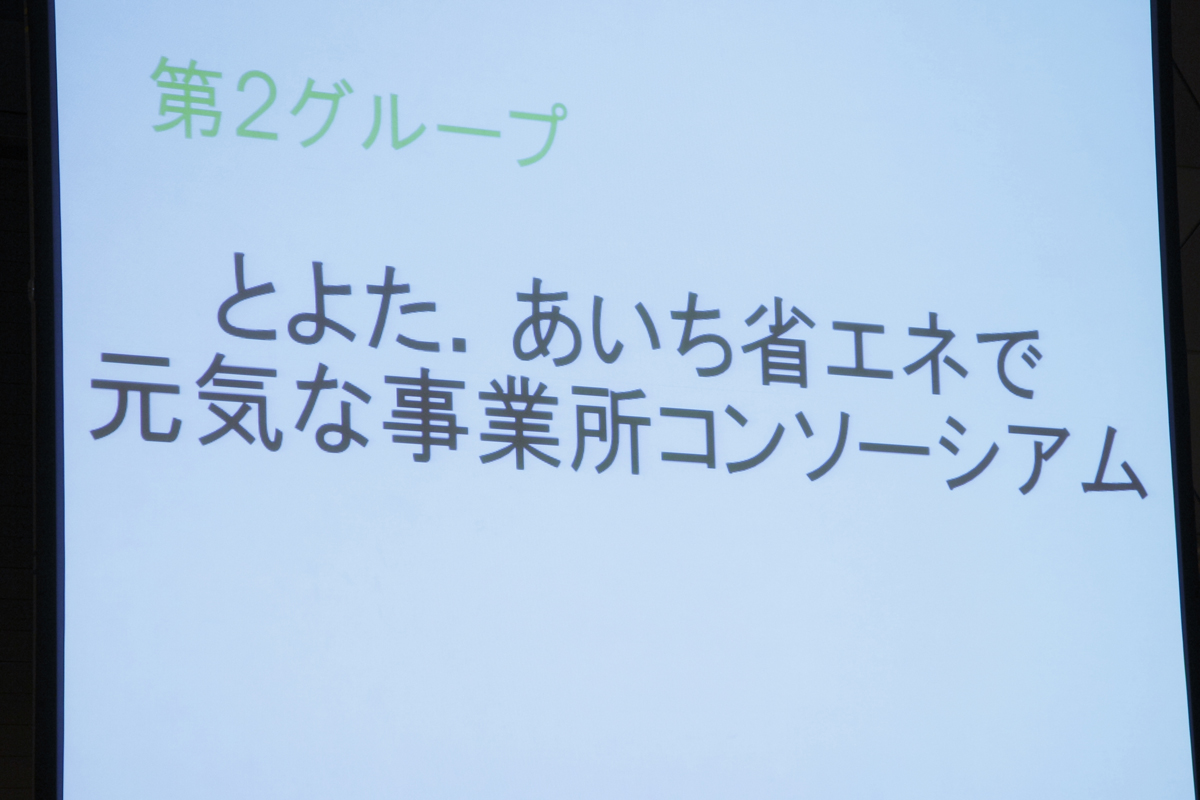 第2グループ
とよた．あいち省エネで
元気な事業所コンソーシアム